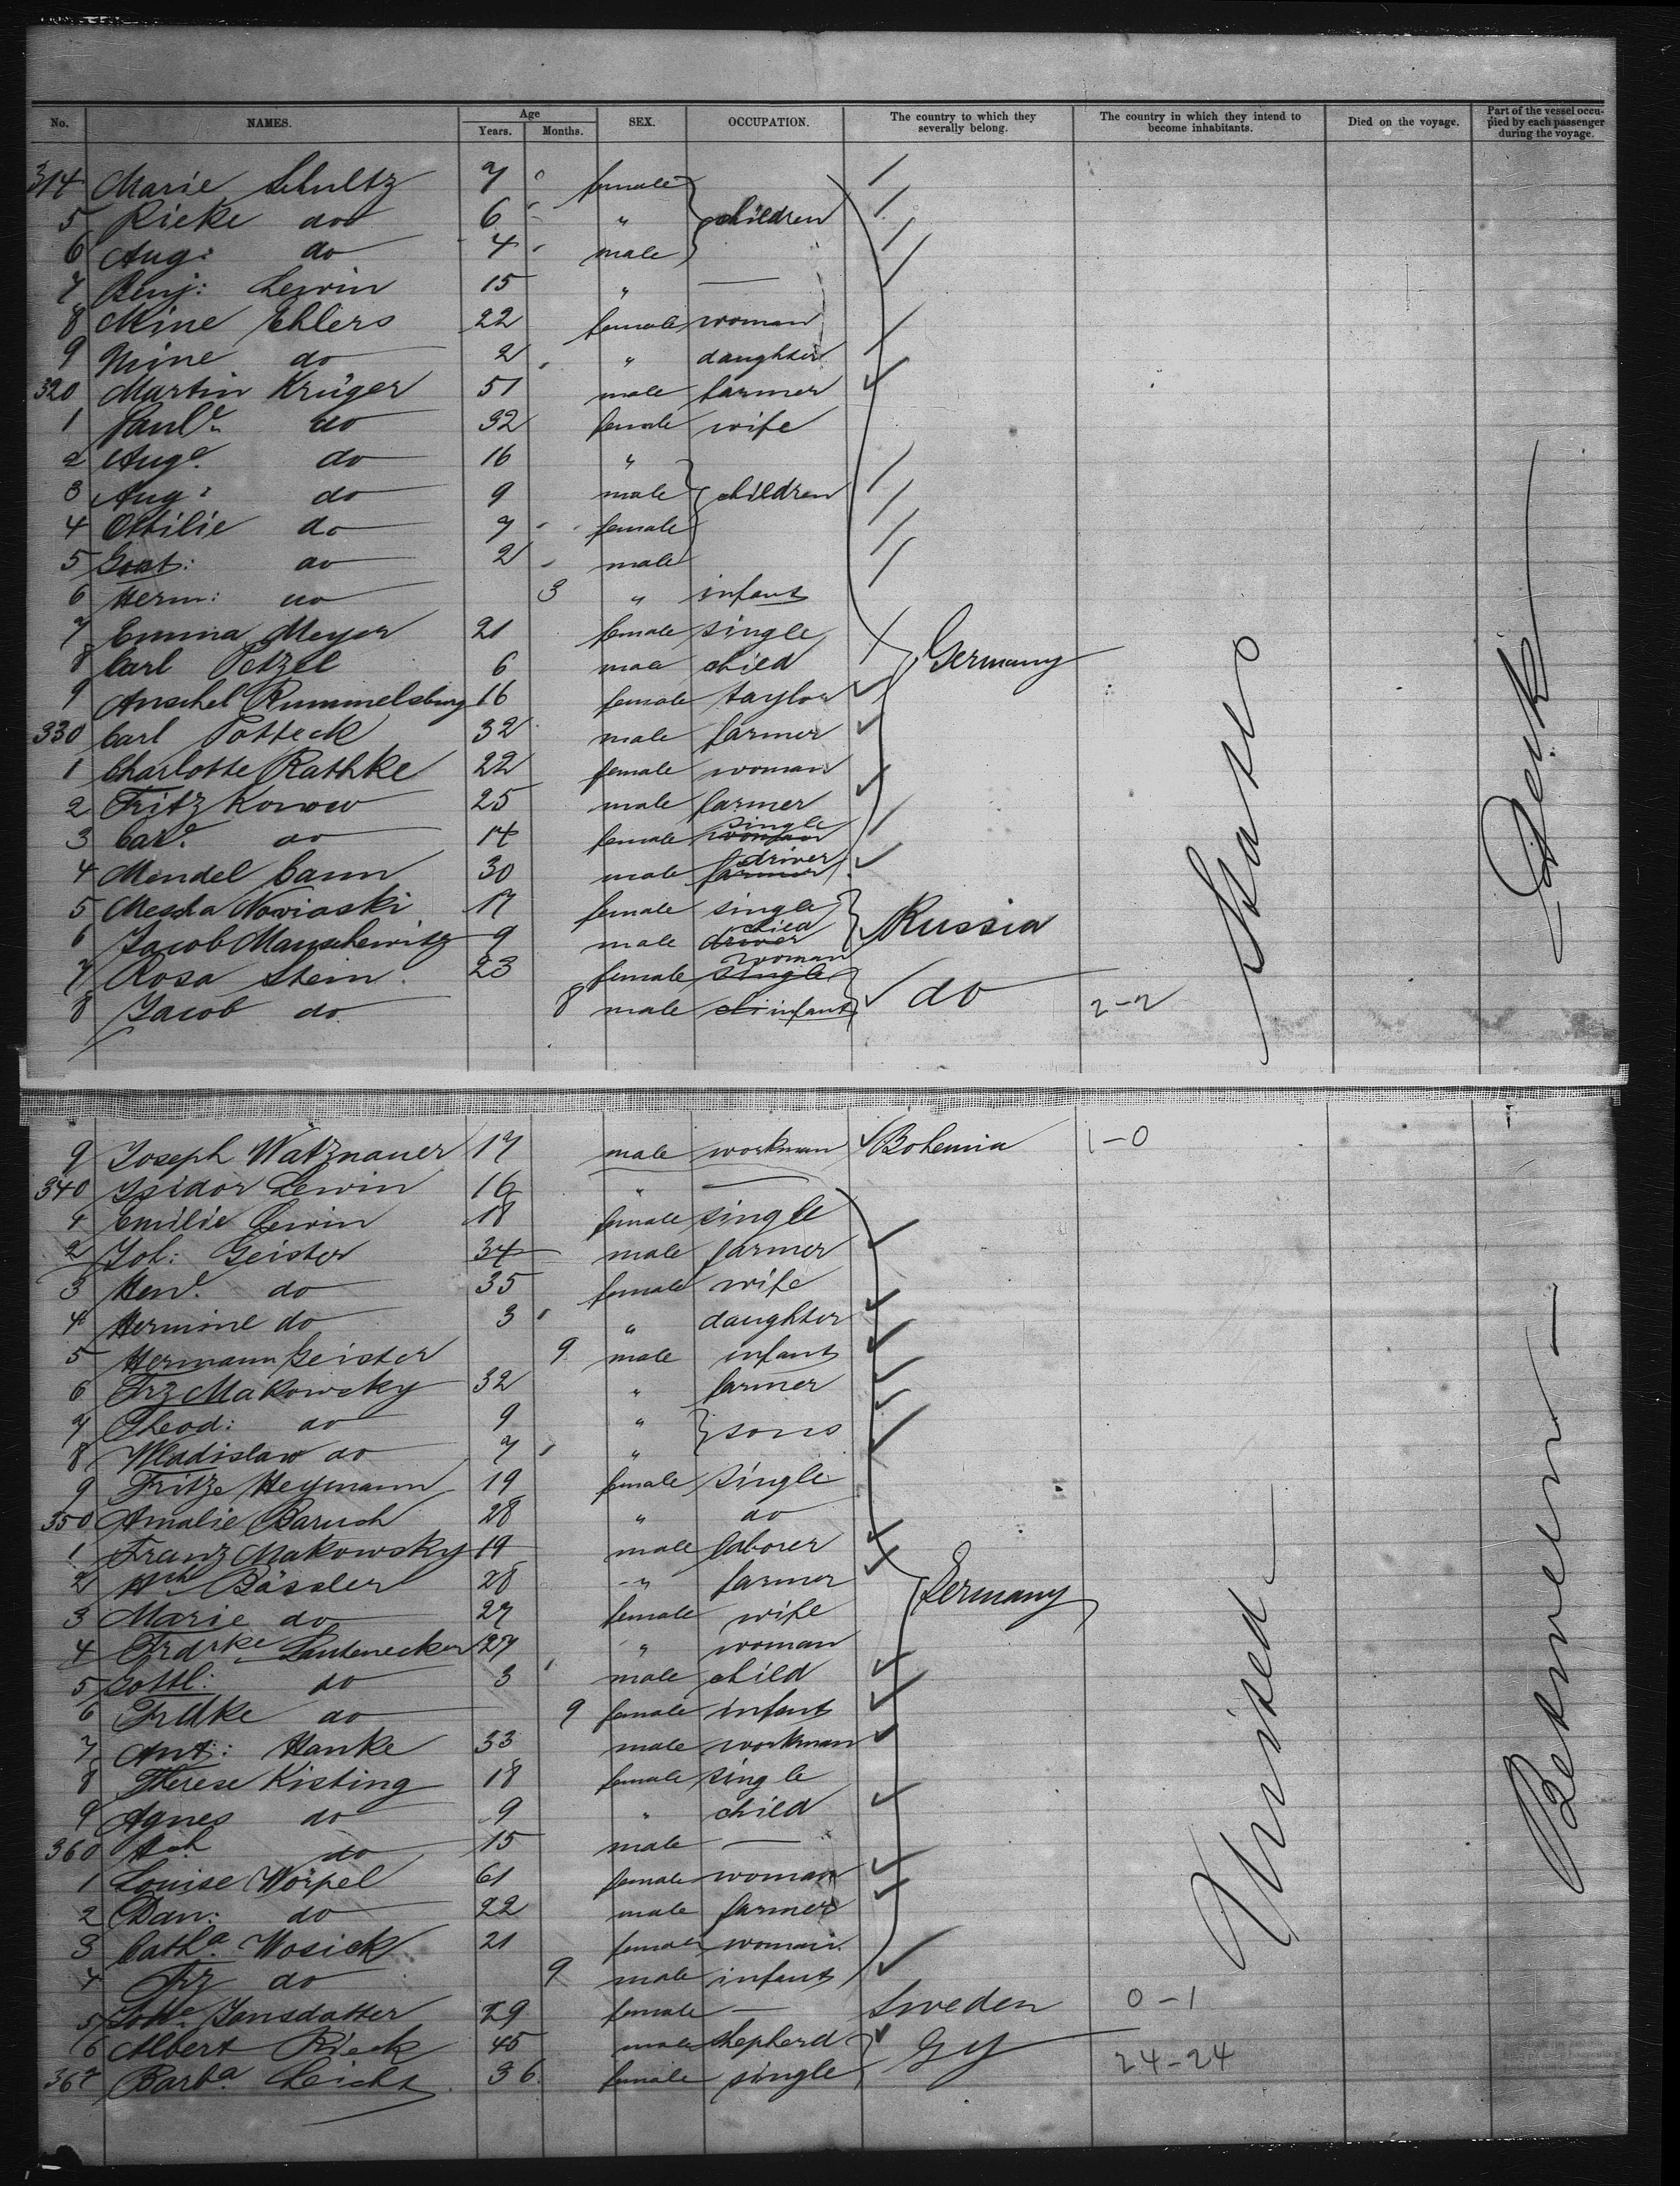 No. NAMES. Age Years. Months. SEX. OCCUPATION. The country to which they severally belong. The country in which they intend to become inhabitants. Died on the voyage. Part of the vessel occupied by each passenger during the voyage.
314 Marie Schultz 7 female
5 Rieke do 6 " children
6 Aug: do 4 male
7 Benj: Lewin 15 " —
8 Mine Ehlers 22 female woman
9 Mine do 2 " daughter
320 Martin Krüger 51 male farmer
1 Paule do 32 female wife
2 Auge. do 16 "
3 Aug: do 9 male children
4 Ottilie do 7 female
5 Gust: do 2 male
6 Herm: do 3 " infant
7 Emma Meyer 21 female single Germany
8 Carl Petzel 6 male child
9 Anschel Rummelsburg 16 female taylor
330 Carl Potteck 32 male farmer
1 Charlotte Rathke 22 female woman
2 Fritz Konow 25 male farmer
3 Care. do 17 female woman single
4 Mendel Cann 30 male farmer driver
5 Mescha Noviaski 17 female single Russia
6 Jacob Manschewitz 9 male driver child
7 Rosa Stein 23 female single woman
8 Jacob do 8 male chi infant do 2-2
9 Joseph Watznauer 17 male workman Bohemia 1-0
340 Isidor Lewin 16 " —
1 Emilie Lewin 18 female single
2 Joh: Geister 34 male farmer
3 Hene. do 35 female wife
4 Hermine do 3 " daughter
5 Hermann Geister 9 male infant
6 Frz Makowsky 32 " farmer
7 Theod: do 9 " sons
8 Wladislaw do 7 "
9 Fritze Heymann 19 female single
350 Amalie Baruch 28 " do
1 Franz Makowsky 19 male laborer
2 Hch Bässler 28 " farmer Germany
3 Marie do 27 female wife
4 Frdrke Lautenecker 27 " woman
5 Gottl: do 3 male child
6 Frdke do 9 female infant
7 Ant: Hanke 33 male workman
8 Therese Kisting 18 female single
9 Agnes do 9 " child
360 Hch do 15 male —
1 Louise Wörpel 61 female woman
2 Dan: do 22 male farmer
3 Catha. Wosick 21 female woman
4 Frz do 9 male infant
5 Jansdatter 29 female — Sweden 0-1
6 Albert Rieck 45 male shepherd Gy 24-24
367 Barba. Leicht 36 female single
United States
Between Deck